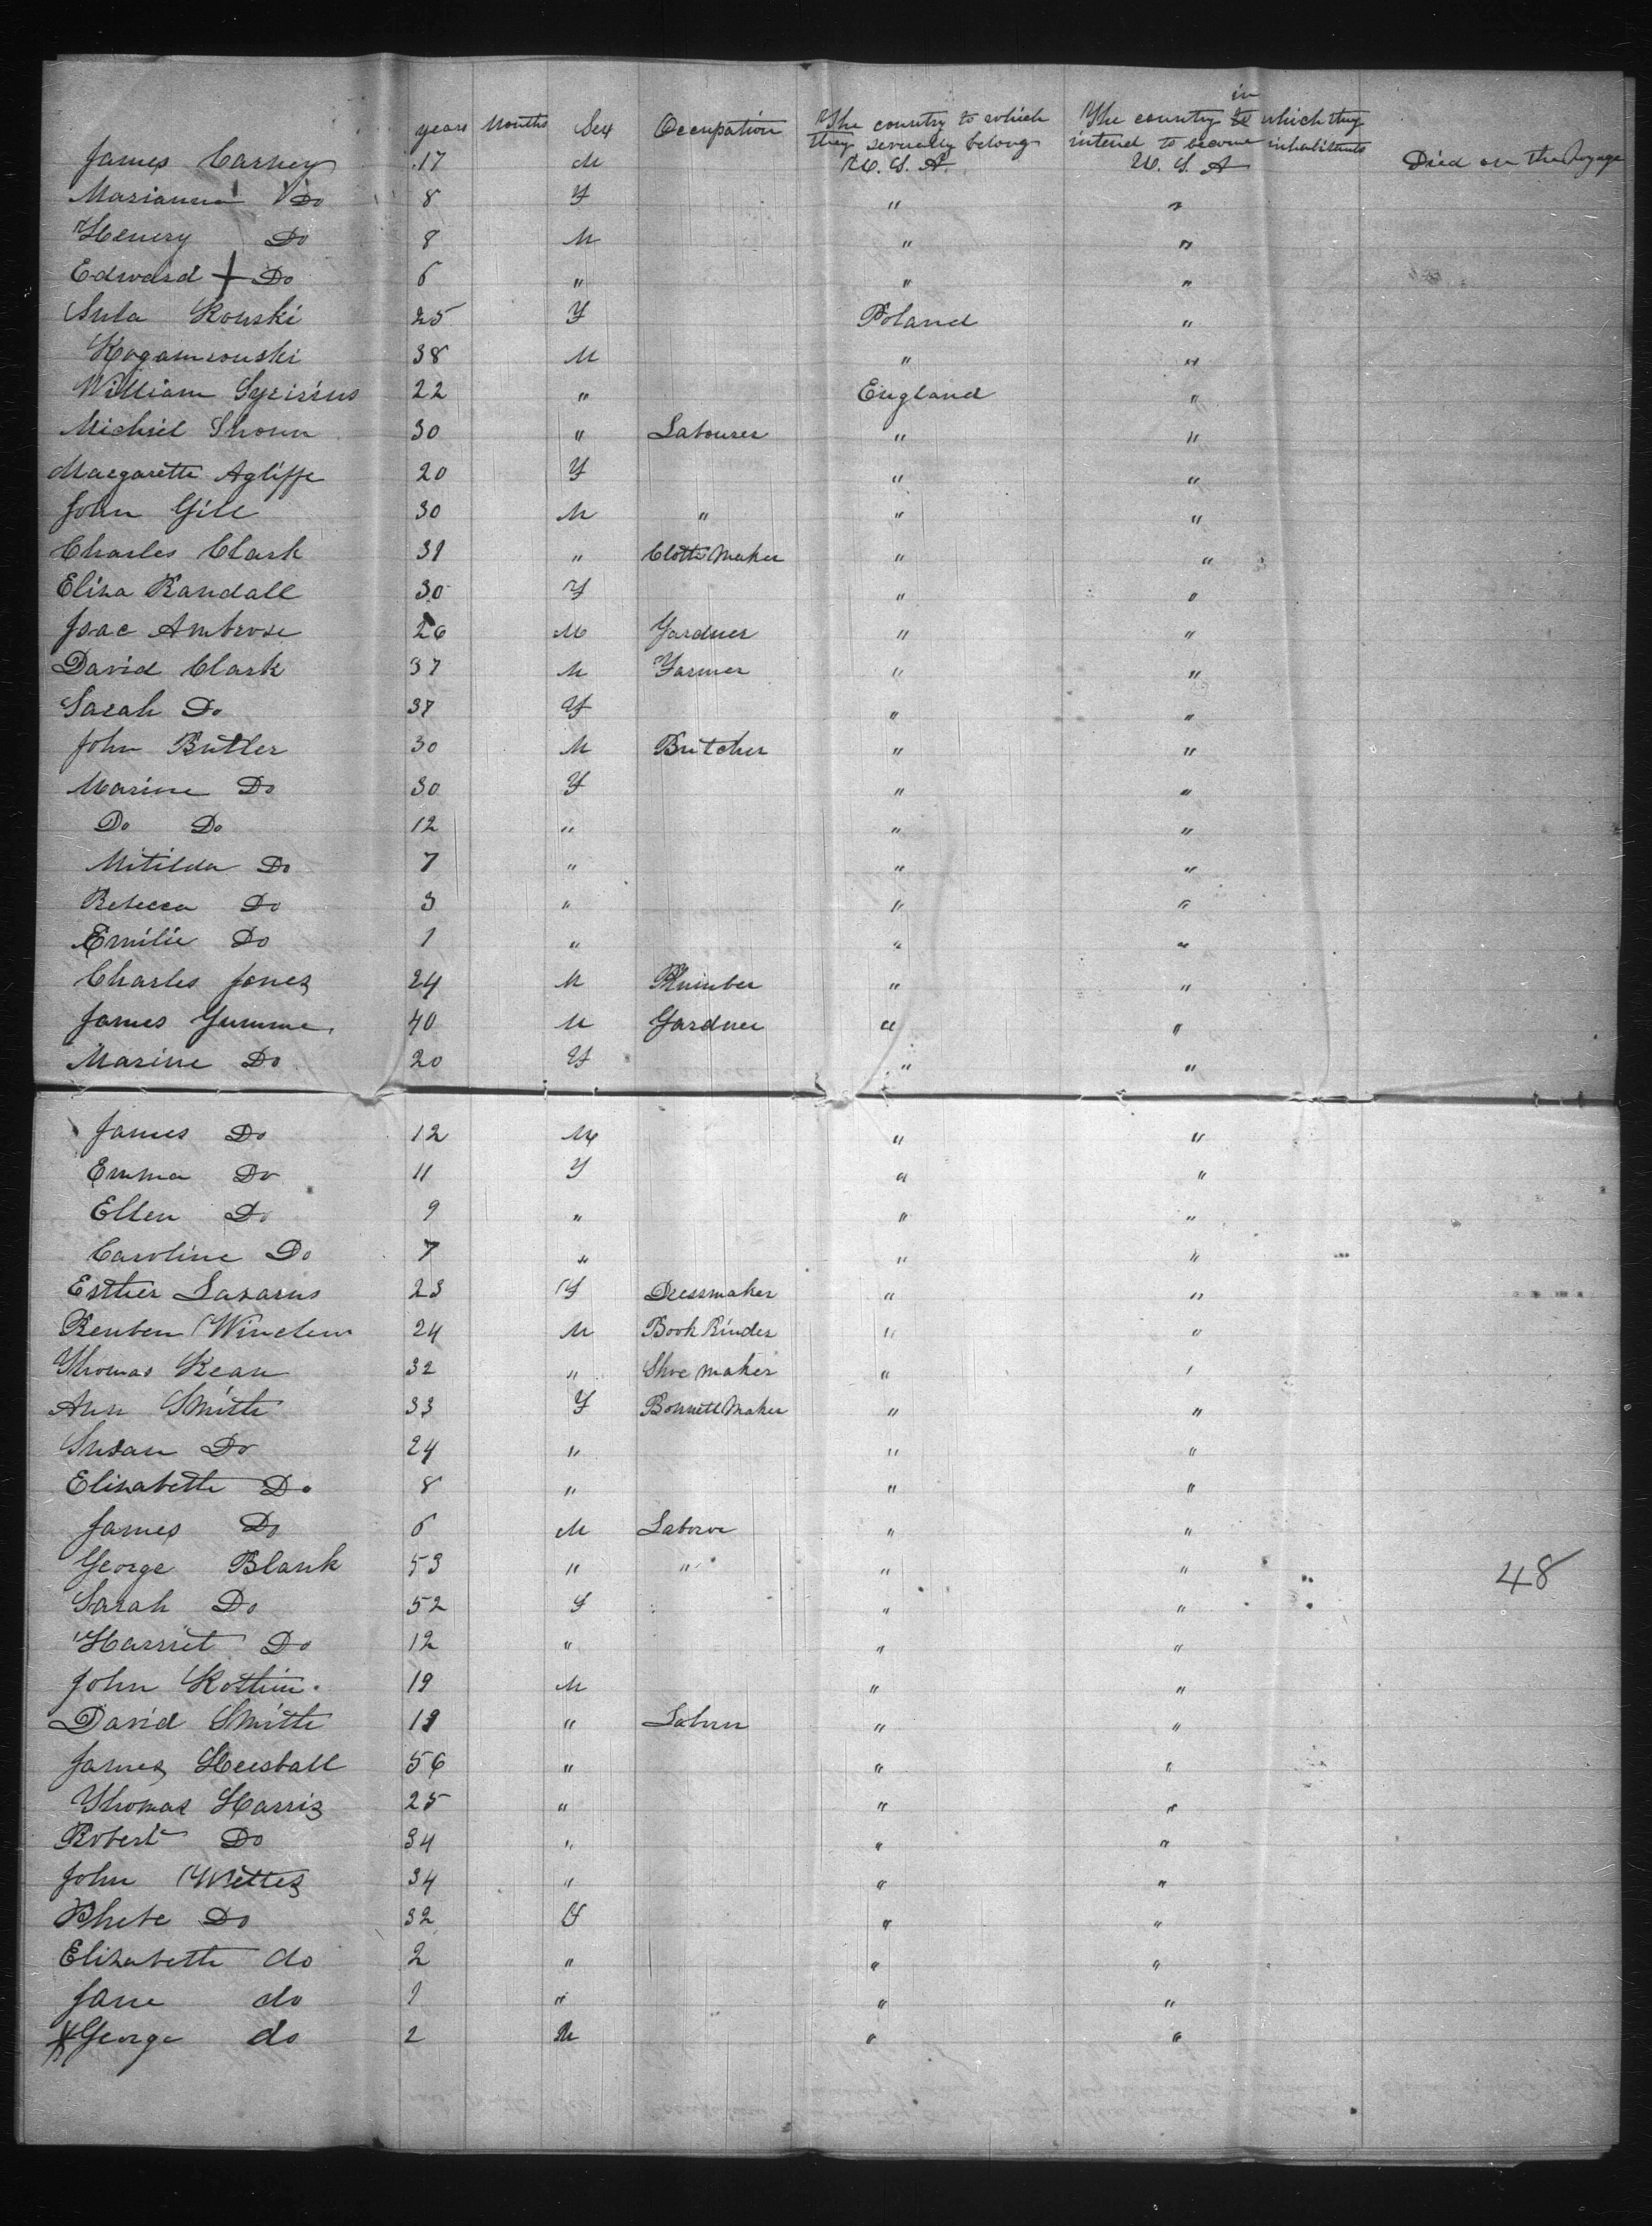 years Months Sex Occupation The country to which they severally belong The country to in which they intend to become inhabitants Died on the Voyage
James Carney 17 M U. S. A. U. S. A
Marianna Do 8 F " "
Henery Do 8 M " "
Edward + Do 6 " " "
Sula Kouski 25 F Poland "
38 M " "
William 22 " England "
Michiel Shoun 30 " Labourer " "
Margarette Agliffe 20 F " "
John Gill 30 M " " "
Charles Clark 39 " Cloth Maker " "
Eliza Randall 30 F " "
Isac Ambrose 26 M Gardner " "
David Clark 37 M Farmer " "
Sarah Do 37 F " "
John Butler 30 M Butcher " "
Marine Do 30 F " "
Do Do 12 " " "
Mitilda Do 7 " " "
Rebecca Do 3 " " "
Emilie Do 1 " " "
Charles Jones 24 M Plumber " "
James Gumme 40 M Gardner " "
Marine Do 20 F " "
James Do 12 M " "
Emma Do 11 F " "
Ellen Do 9 " " "
Caroline Do 7 " " "
Esther Lazarus 23 F Dressmaker " "
Reuben 24 M Book Binder " "
Thomas Kean 32 " Shoe maker " "
Ann Smith 33 F Bonnett Maker " "
Susan Do 24 " " "
Elizabeth Do 8 " " "
James Do 6 M Laborer " "
George Blank 53 " " " "
48
Sarah Do 52 F " "
Harriet Do 12 " " "
John 19 M " "
David Smith 19 " Laborer " "
James Heesball 56 " " "
Thomas Harris 25 " " "
Robert Do 34 " " "
John 34 " " "
Phebe Do 32 F " "
Elizabeth do 2 " " "
Jane do 1 " " "
George do 2 M " "